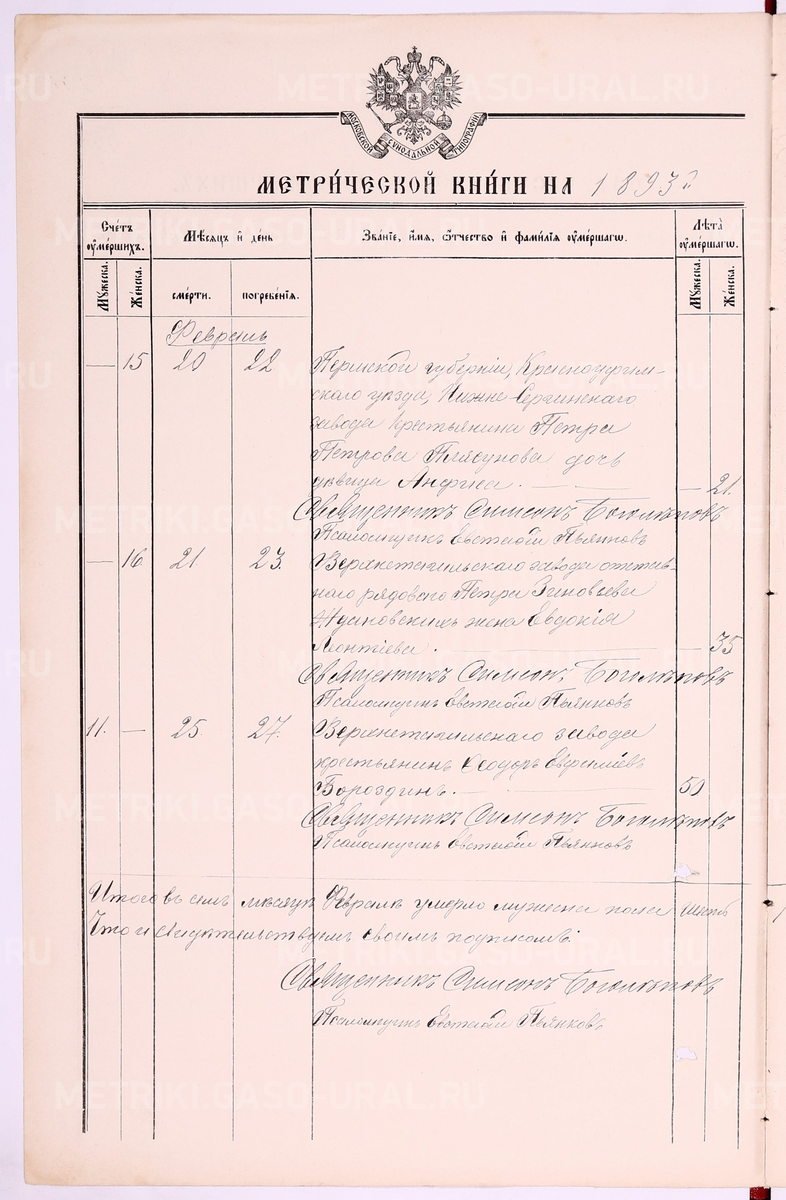 МОСКОВСКОЙ СѴНОДАЛЬНОЙ ТИПОГРАФІИ
МЕТРИ́ЧЕСКОЙ КНИ́ГИ НА 1893 г.
Сче́тъ ᲂумершихъ.
Мѣсяцъ и де́нь
Зва́ніе, и́мя, ѻтчество и фамилія ᲂумершагѡ.
Лѣта ᲂумершагѡ.
Мужеска.
Женска.
сме́рти.
погребе́нія.
Мужеска.
Женска.
Февраль
— 15 20 22 Пермской губерніи, Красноуфим-
скаго уѣзда, Нижне-Сергинскаго
завода крестьянина Петра
Петрова Плясунова дочь
дѣвица Анфиса. — — 21.
Священникъ Симеонъ Боголѣповъ
Псаломщикъ Евстафій Пьянковъ
— 16 21 23. Верхнетагильскаго завода отстав-
наго рядоваго Петра Зиновьева
жена Евдокія
Леонтіева. — — 35
Священникъ Симеонъ Боголѣповъ
Псаломщикъ Евстафій Пьянковъ
11. — 25 27. Верхнетагильскаго завода
крестьянинъ Ѳеодоръ
Бороздинъ. — 50
Священникъ Симеонъ Боголѣповъ
Псаломщикъ Евстафій Пьянковъ
Итого въ семъ мѣсяцѣ Февралѣ умерло мужеска пола
Что и свидѣтельствуемъ своимъ подписомъ:
Священникъ Симеонъ Боголѣповъ
Псаломщикъ Евстафій Пьянковъ
METRIKI.GASO-URAL.RU